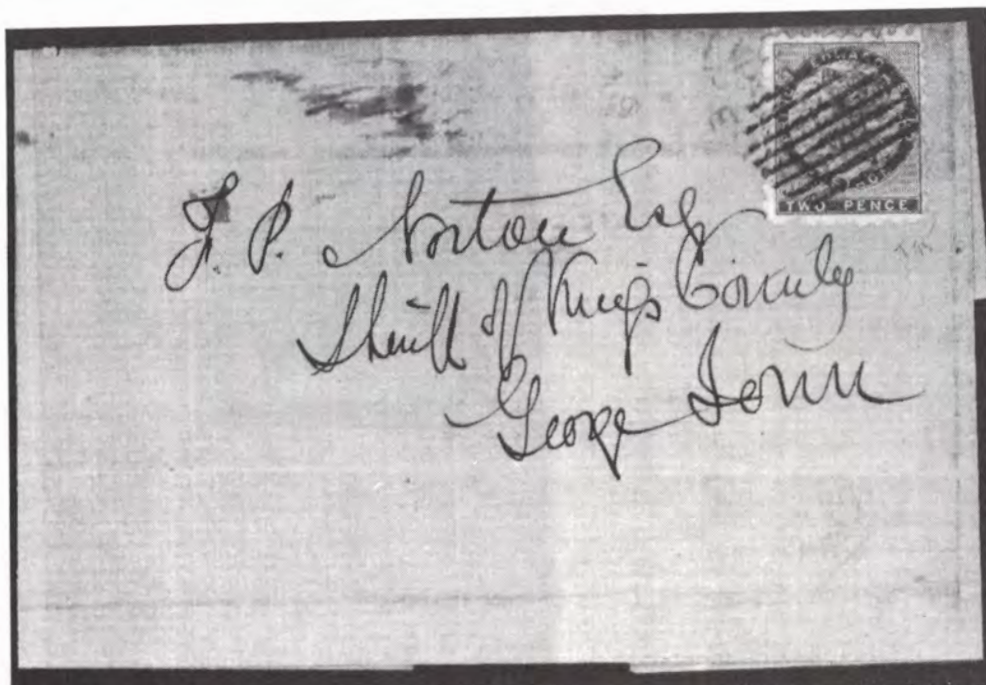 TWO PENCE
J. P. Norton Esq
Sheriff of Kings County
George Town